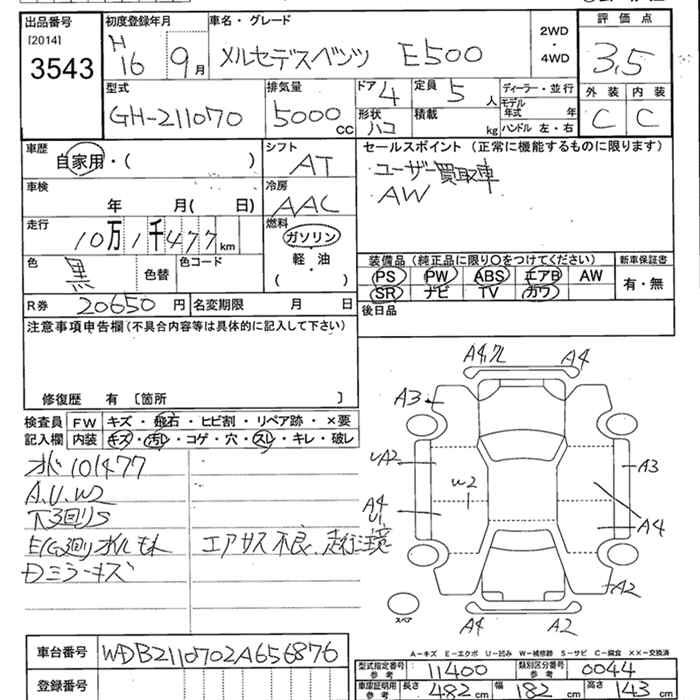 出品番号 初度登録年月 車名・グレード 評価点
[2014] H 2WD
3543 16 9月 メルセデスベンツ E500 ・ 3,5
4WD
型式 排気量 ドア 4 定員 5 人 ディーラー・並行 外装 内装
GH-211070 5000 cc 形状 ハコ 積載 kg モデル年式 年 C C
ハンドル 左・右
車歴 シフト セールスポイント (正常に機能するものに限ります)
自家用・( ) AT ユーザー買取車
車検 冷房 AW
年 月( 日) AAC
走行 燃料
10万1千477km ガソリン 装備品 (純正品に限り○をつけてください) 新車保証書
色 黒 色替 色コード 軽・油 PS PW ABS エアB AW 有・無
・( ) SR ナビ TV カワ
R券 20650 円 名変期限 月 日 後日品
注意事項申告欄(不具合内容等は具体的に記入して下さい)
修復歴 有 〔箇所 〕
検査員 FW キズ・飛石・ヒビ割・リペア跡・×要
記入欄 内装 キズ・汚レ・コゲ・穴・スレ・キレ・破レ
101477
A.U.W2
エアサス不良、走行注意
ミラーキズ
A4 A4
A3
A2 A3
W2
A4 A4
U1
A2
スペア A4 A2
A－キズ E－エクボ U－凹み W－補修跡 S－サビ C－腐食 ××－交換済
車台番号 WDB2110702A656876 型式指定番号 参考 11400 類別区分番号 参考 0044
登録番号 車庫証明用 参考 長さ 482 cm 幅 182 cm 高さ 143 cm